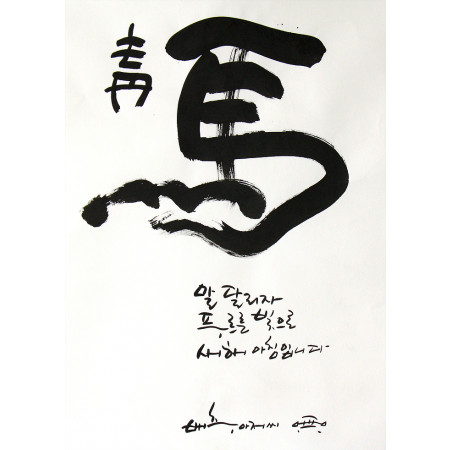 靑馬
말 달리자
푸르른 빛으로
새해 아침입니다
아저씨